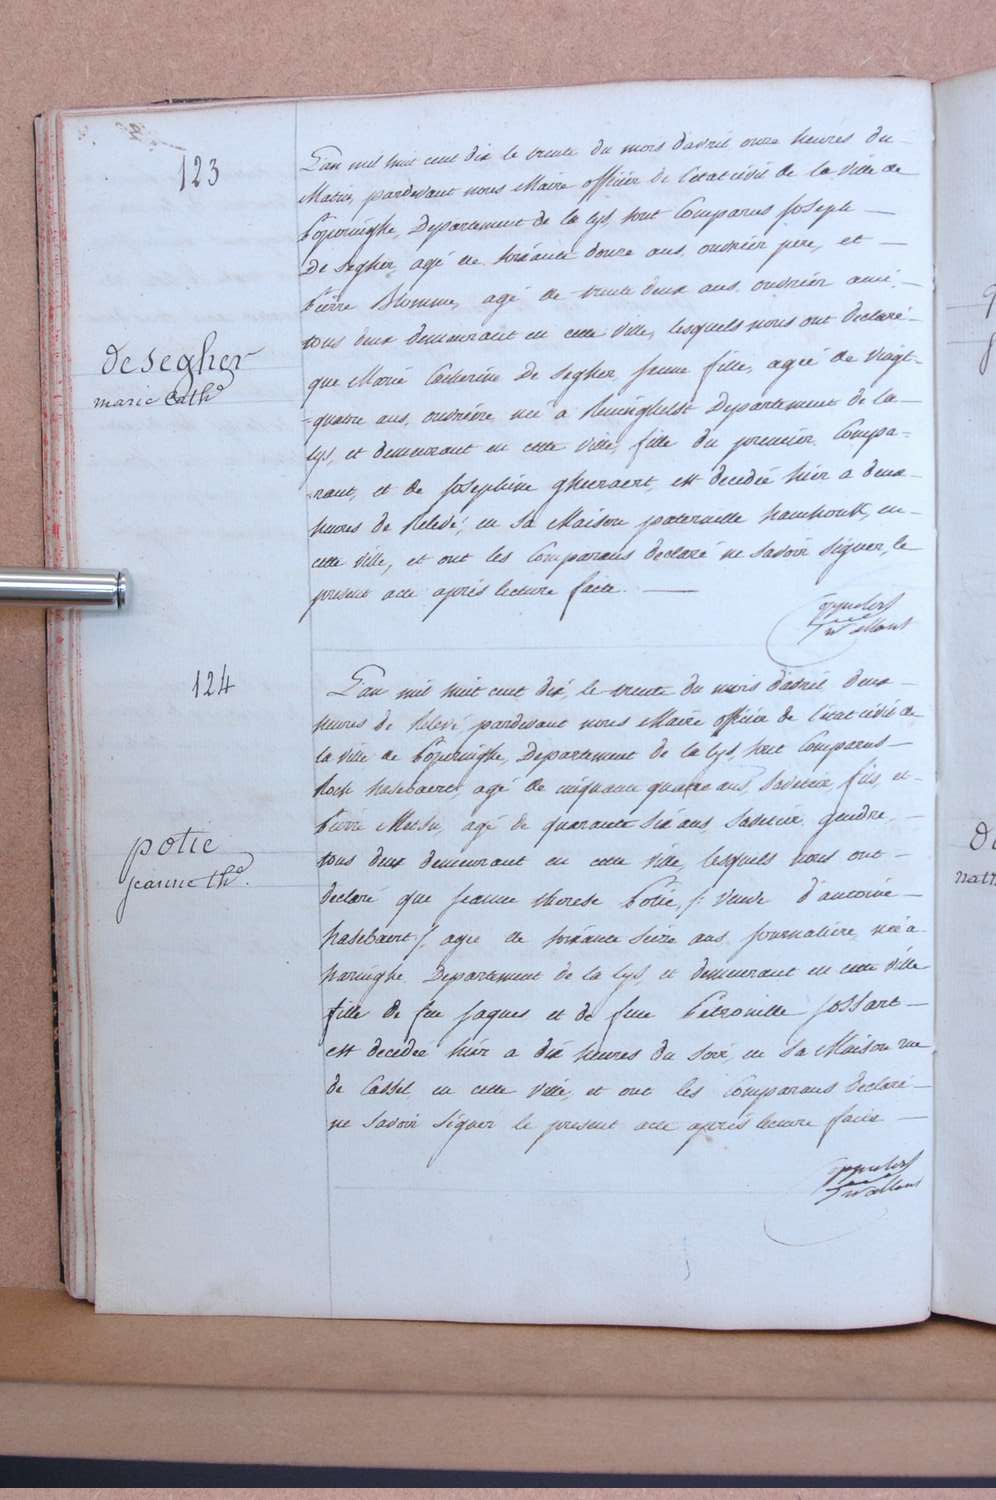 123
L'an mil huit cent dix le trente du mois d'avril onze heures du
Matin, pardevant nous Maire officier de l'etat civil de la ville de
Poperinghe, Departement de la Lys, sont Comparus Joseph
De Segher, agé de soixante douze ans, ouvrier, pere, et
Pierre Blomme, agé de trente deux ans, ouvrier ami,
tous deux demeurant en cette ville, lesquels nous ont declaré
desegher
que Marie Catherine De Segher, jeune fille, ageé de vingt-
marie Cathe
quatre ans, ouvriere, neé a Reninghelst Departement de la
Lys, et demeurant en cette ville, fille du premier Compa-
rant, et de Josephine gheeraert, est decedeé hier a deux
heures de Relevé, en sa Maison paternelle, en
cette ville, et ont les Comparans declaré ne savoir signer, le
present acte après lecture faite.
124
L'an mil huit cent dix, le trente du mois d'avril deux
heures de Relevé, pardevant nous Maire officier de l'etat civil de
la ville de Poperinghe, Departement de la Lys, sont Comparus
Roch hasebaert, agé de cinquante quatre ans, fils, et
Pierre agé de quarante six ans, gendre,
potie
tous deux demeurant en cette ville, lesquels nous ont
jeanne the.
declaré que Jeanne therese Potie, /: veuve d'antoine
hasebaert :/, ageé de soixante seize ans, journaliere, neé a
haringhe Departement de la Lys, et demeurant en cette ville
fille de feu Jaques et de feue Petronille Jossart
est decedeé hier a dix heures du soir, en sa Maison rue
de Cassel, en cette ville, et ont les Comparans declaré
ne savoir signer le present acte après lecture faite